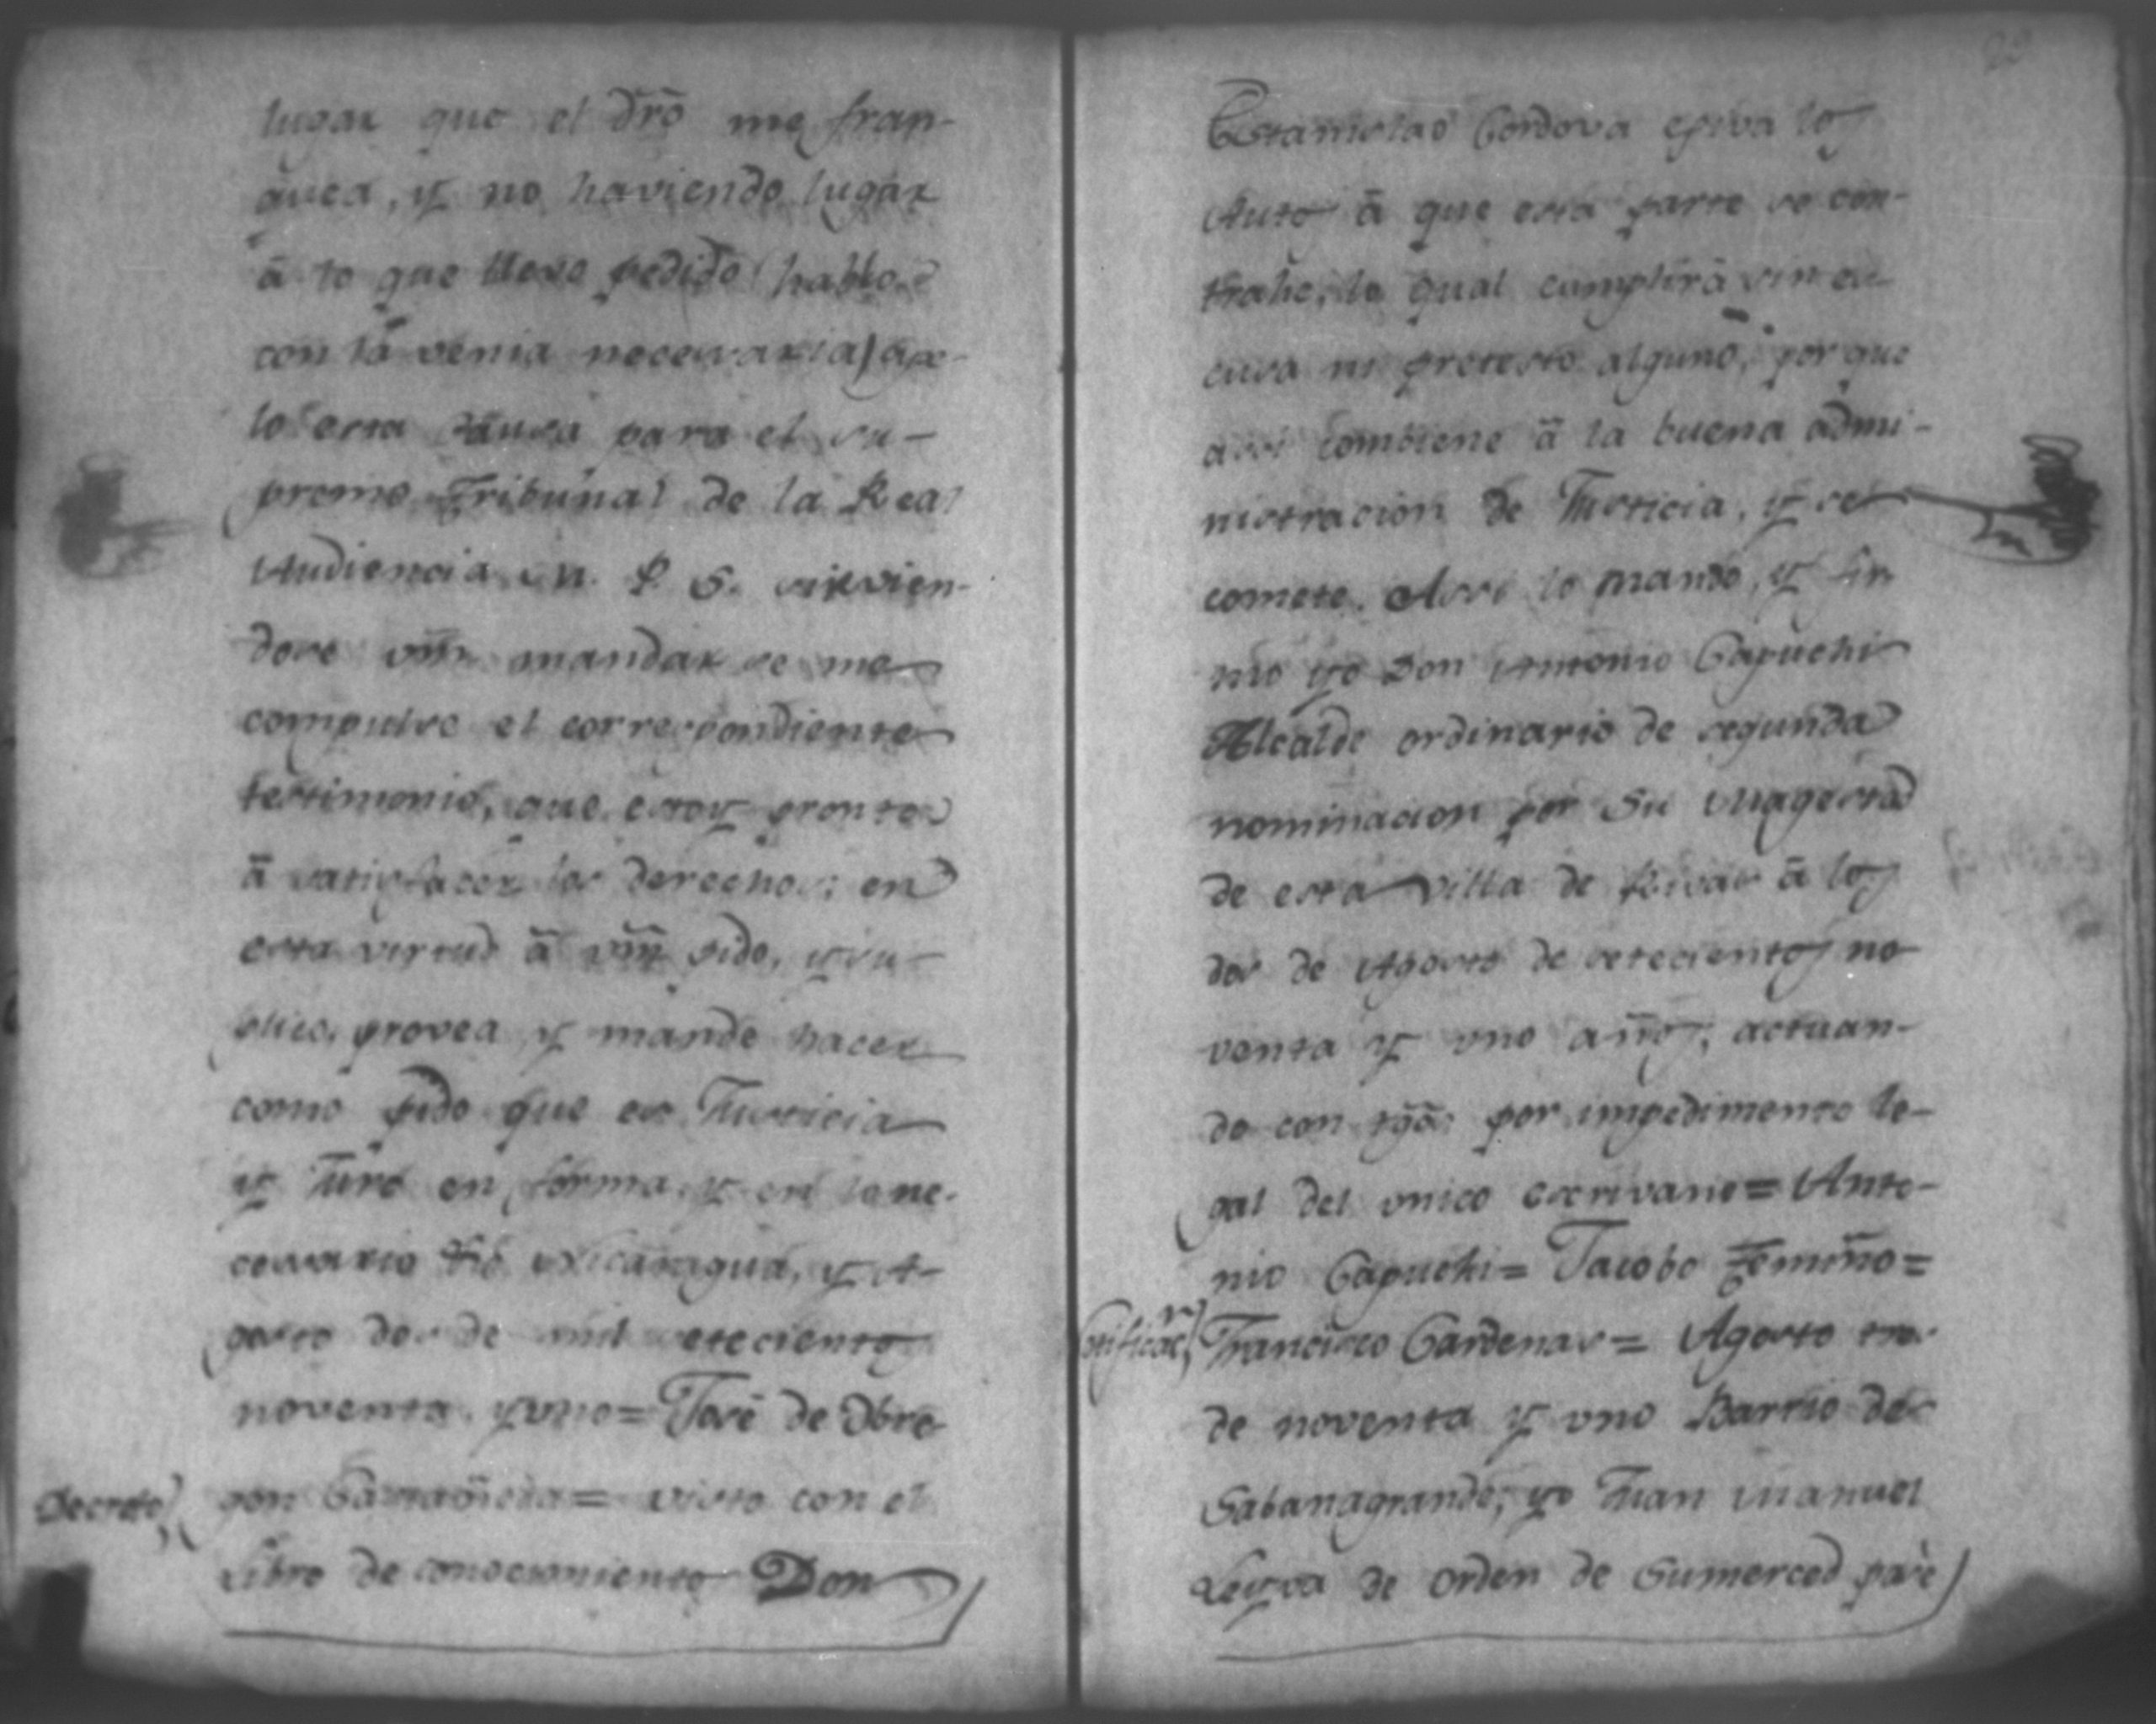 lugar que el dro me fran-
quea, y no haviendo lugar
â lo que llevo pedido (hablo
con la venia necessaria) ape-
lo esta causa para el su-
premo Tribunal de la Real
Audiencia M. P. S. sirvien-
dose vm mandar se me
compulse el correspondiente
testimonio, que estoy pronto
â satisfacer los derechos: en
esta virtud â vm pido, y su-
plico, provea y mande hacer
como pido que es Justicia
y Juro en forma, y en lo ne-
cessario Nicaragua, y A-
gosto dos de mil setecientos
noventa y uno = José de Obre-
Decreto) gon = visto con el
Libro de conocimientos Don
Estanislao Cordova los
Autos â que esta parte se con-
trahe, lo qual cumplirá sin es-
cusa ni pretesto alguno, por que
assi combiene â la buena admi-
nistracion de Justicia, y se
comete. Assi lo mandó, y fir
mo yo Don Antonio Capuchi
Alcalde ordinario de segunda
nominacion por Su Magestad
de esta villa de Rivas â los
dos de Agosto de setecientos no
venta y uno años; actuan-
do con tgos por impedimento le-
gal del unico escrivano = Anto-
nio Capuchi = Jacobo =
Francisco Cardenas = Agosto tres
de noventa y uno Barrio de
Sabanagrande, yo Juan Manuel
Leyva de orden de Sumerced pase